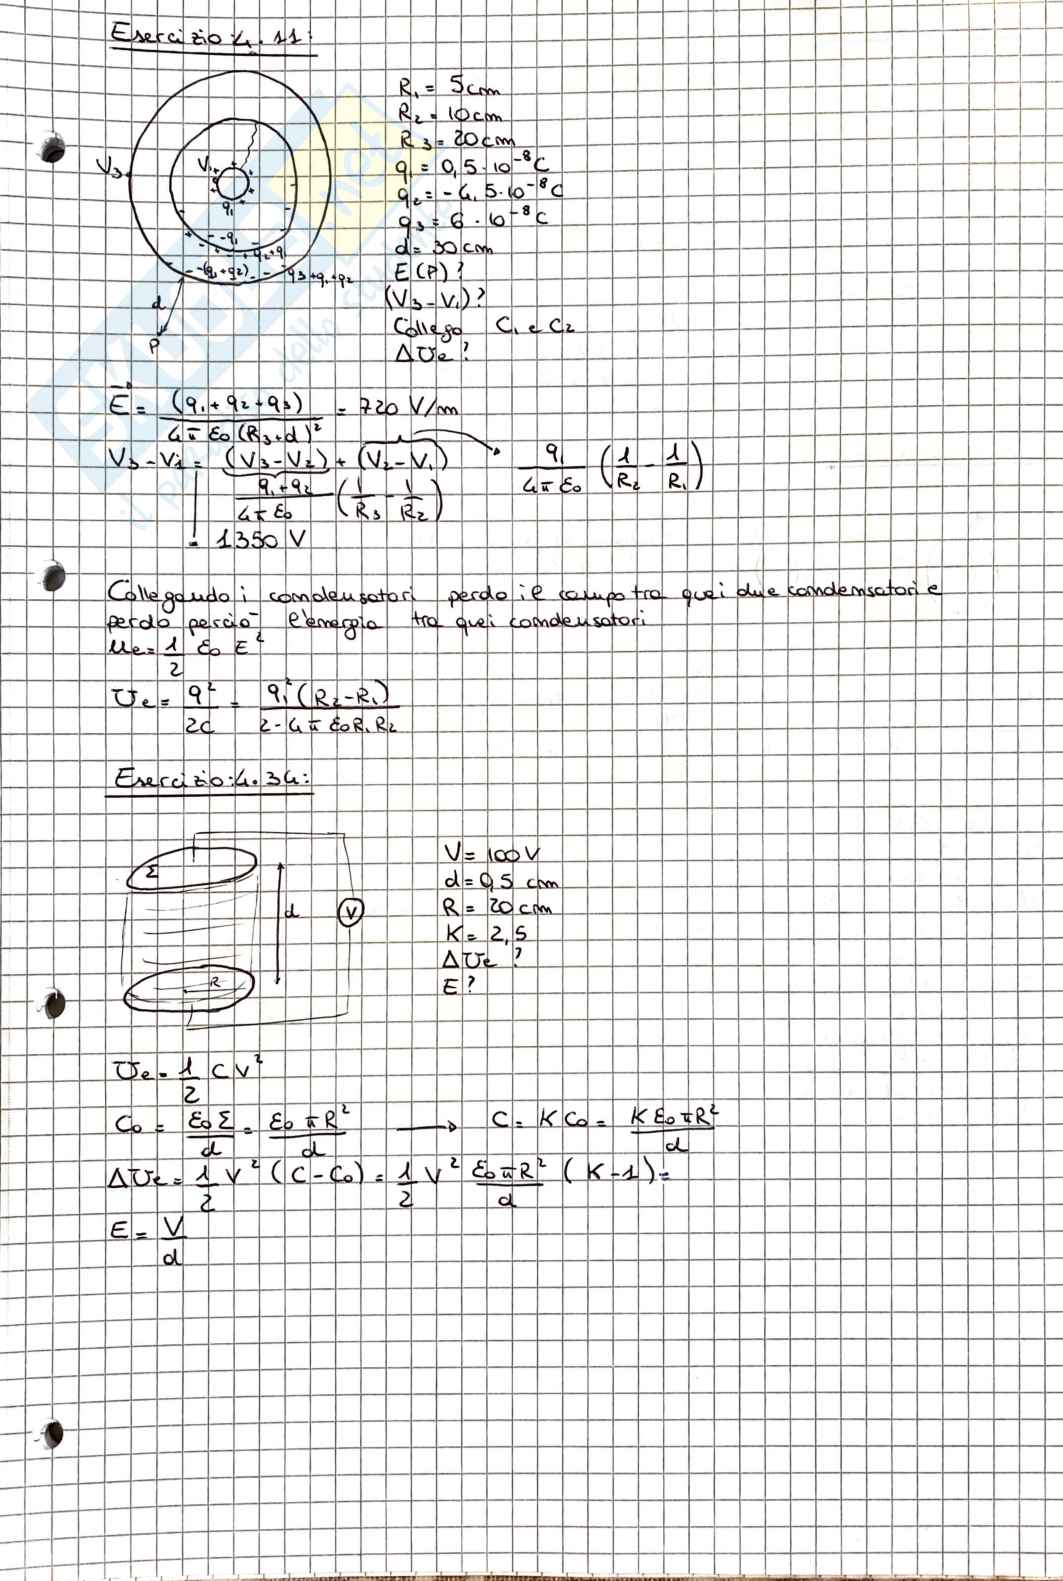 Esercizio 4.11:
R₁ = 5cm
R₂ = 10cm
R₃ = 20cm
q₁ = 0,5·10⁻⁸C
q₂ = -4,5·10⁻⁸C
q₃ = 6·10⁻⁸C
d = 30cm
E(P)?
(V₃-V₁)?
Collego C₁ e C₂
ΔUe?
V₃
V₁
q₁
-q₁
q₂+q₁
-(q₁+q₂)
q₃+q₁+q₂
d
P
E⃗ = (q₁+q₂+q₃) / 4πε₀(R₃+d)² = 720 V/m
V₃-V₁ = (V₃-V₂) + (V₂-V₁) → q₁/4πε₀ (1/R₂ - 1/R₁)
q₁+q₂/4πε₀ (1/R₃ - 1/R₂)
= 1350 V
Collegando i condensatori perdo il campo tra quei due condensatori e
perdo perciò l'energia tra quei condensatori
ue = 1/2 ε₀ E²
Ue = q²/2C = q₁²(R₂-R₁) / 2·4πε₀R₁R₂
Esercizio:4.34:
Σ
d
V
R
V = 100V
d = 0,5 cm
R = 20cm
K = 2,5
ΔUe ?
E?
Ue = 1/2 CV²
C₀ = ε₀Σ/d = ε₀πR²/d → C = KC₀ = Kε₀πR²/d
ΔUe = 1/2 V² (C-C₀) = 1/2 V² ε₀πR²/d (K-1) =
E = V/d